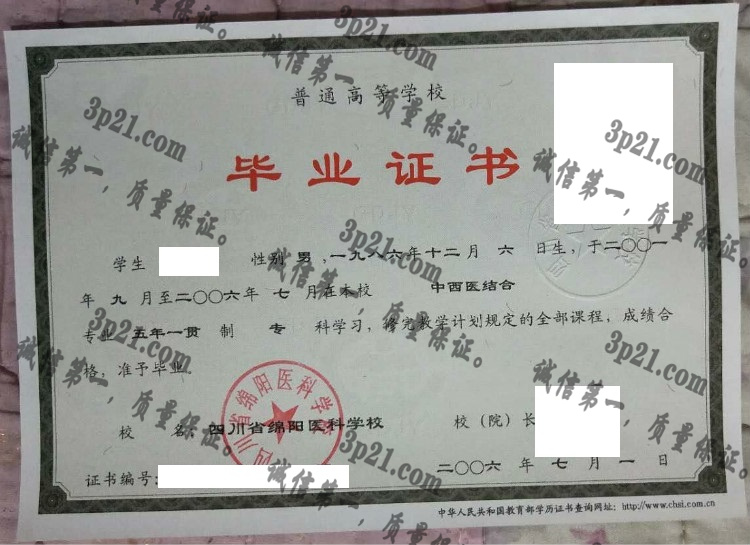 普通高等学校
毕业证书
学生 性别 男 ,一九八六年十二月 六 日生,于二〇〇一
年 九 月至二〇〇六年 七 月在本校 中西医结合
专业 五年一贯 制 专 科学习,修完教学计划规定的全部课程,成绩合
格,准予毕业
校 名:四川省绵阳医科学校 校(院)长
二〇〇六 年 七 月 一 日
证书编号:
中华人民共和国教育部学历证书查询网址:http://www.chsi.com.cn
四川省绵阳医科学校
3p21.com
诚信第一,质量保证。
3p21.com
诚信第一,质量保证。
3p21.com
诚信第一,质量保证。
3p21.com
诚信第一,质量保证。
3p21.com
诚信第一,质量保证。
3p21.com
诚信第一,质量保证。
3p21.com
诚信第一,质量保证。
3p21.com
诚信第一,质量保证。